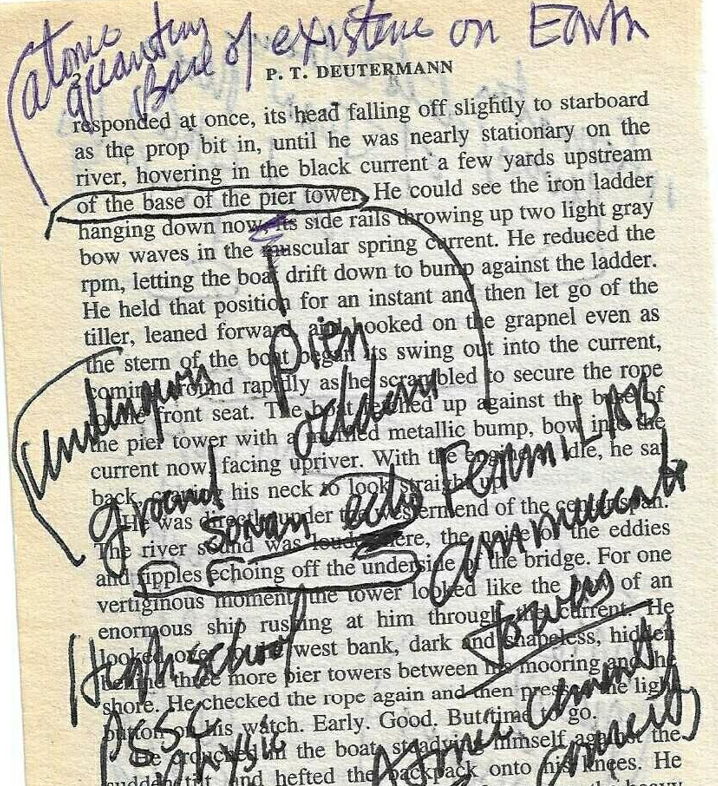 atomic
Base of existence on Earth
P. T. DEUTERMANN
responded at once, its head falling off slightly to starboard
as the prop bit in, until he was nearly stationary on the
river, hovering in the black current a few yards upstream
of the base of the pier tower. He could see the iron ladder
hanging down now, its side rails throwing up two light gray
bow waves in the muscular spring current. He reduced the
rpm, letting the boat drift down to bump against the ladder.
He held that position for an instant and then let go of the
tiller, leaned forward, and hooked on the grapnel even as
the stern of the boat began its swing out into the current,
coming around rapidly as he scrambled to secure the rope
front seat. The boat up against the base of
the pier tower with a metallic bump, bow into the
current now, facing upriver. With the idle, he sat
back, his neck to look straight up.
Pier
underground
sonar echo Fermi LABS
He was directly under the western end of the center span.
The river sound was louder here, the of the eddies
and ripples echoing off the underside of the bridge. For one
vertiginous moment, the tower looked like the of an
enormous ship rushing at him through the current. He
looked over west bank, dark and shapeless, hidden
behind three more pier towers between his mooring and the
shore. He checked the rope again and then pressed the light
button on his watch. Early. Good. But time to go.
He in the boat, steadying himself against the
sudden tilt, and hefted the backpack onto his knees. He
towers
High school
PSSC